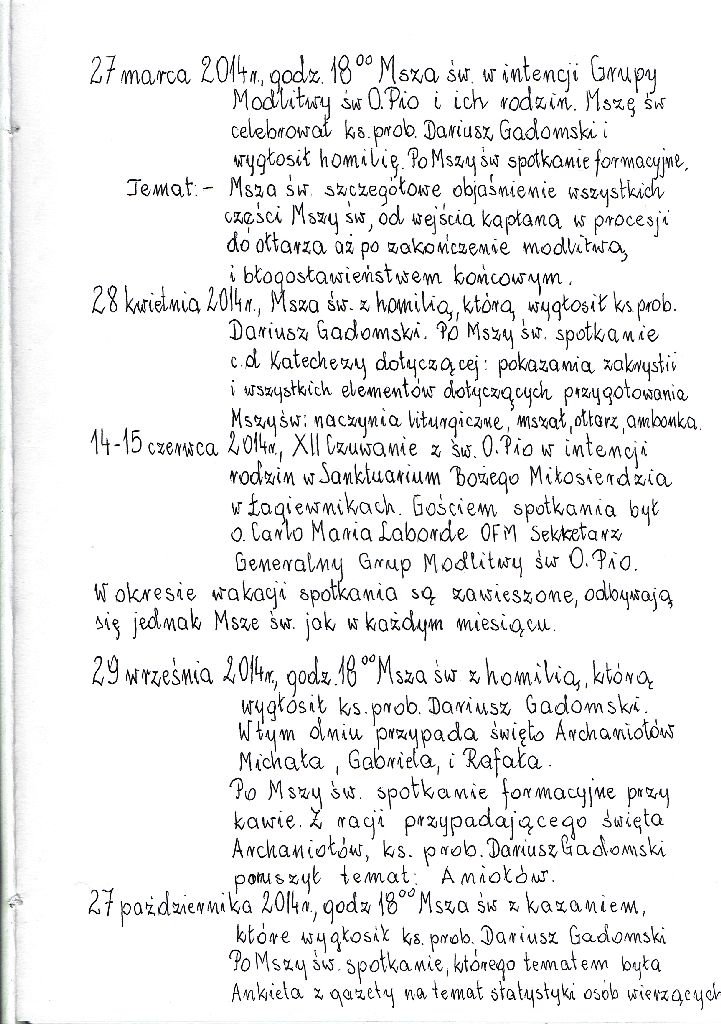 27 marca 2014r., godz. 18⁰⁰ Msza św. w intencji Grupy
Modlitwy św O. Pio i ich rodzin. Mszę św
celebrował ks. prob. Dariusz Gadomski i
wygłosił homilię. Po Mszy św spotkanie formacyjne.
Temat: - Msza św. szczegółowe objaśnienie wszystkich
części Mszy św, od wejścia kapłana w procesji
do ołtarza aż po zakończenie modlitwą
i błogosławieństwem końcowym.
28 kwietnia 2014r., Msza św. z homilią, którą wygłosił ks. prob.
Dariusz Gadomski. Po Mszy św. spotkanie
c.d Katechezy dotyczącej: pokazania zakrystii
i wszystkich elementów dotyczących przygotowania
Mszy św: naczynia liturgiczne, mszał, ołtarz, ambonka.
14-15 czerwca 2014r., XII Czuwanie z św. O. Pio w intencji
rodzin w Sanktuarium Bożego Miłosierdzia
w Łagiewnikach. Gościem spotkania był
o. Carlo Maria Laborde OFM Sekretarz
Generalny Grup Modlitwy św O. Pio.
W okresie wakacji spotkania są zawieszone, odbywają
się jednak Msze św. jak w każdym miesiącu.
29 września 2014r., godz. 18⁰⁰ Msza św z homilią, którą
wygłosił ks. prob. Dariusz Gadomski.
W tym dniu przypada święto Archaniołów
Michała, Gabriela, i Rafała.
Po Mszy św. spotkanie formacyjne przy
kawie. Z racji przypadającego święta
Archaniołów, ks. prob. Dariusz Gadomski
poruszył temat: Aniołów.
27 października 2014r., godz 18⁰⁰ Msza św z kazaniem,
które wygłosił ks. prob. Dariusz Gadomski
Po Mszy św. spotkanie, którego tematem była
Ankieta z gazety na temat statystyki osób wierzących